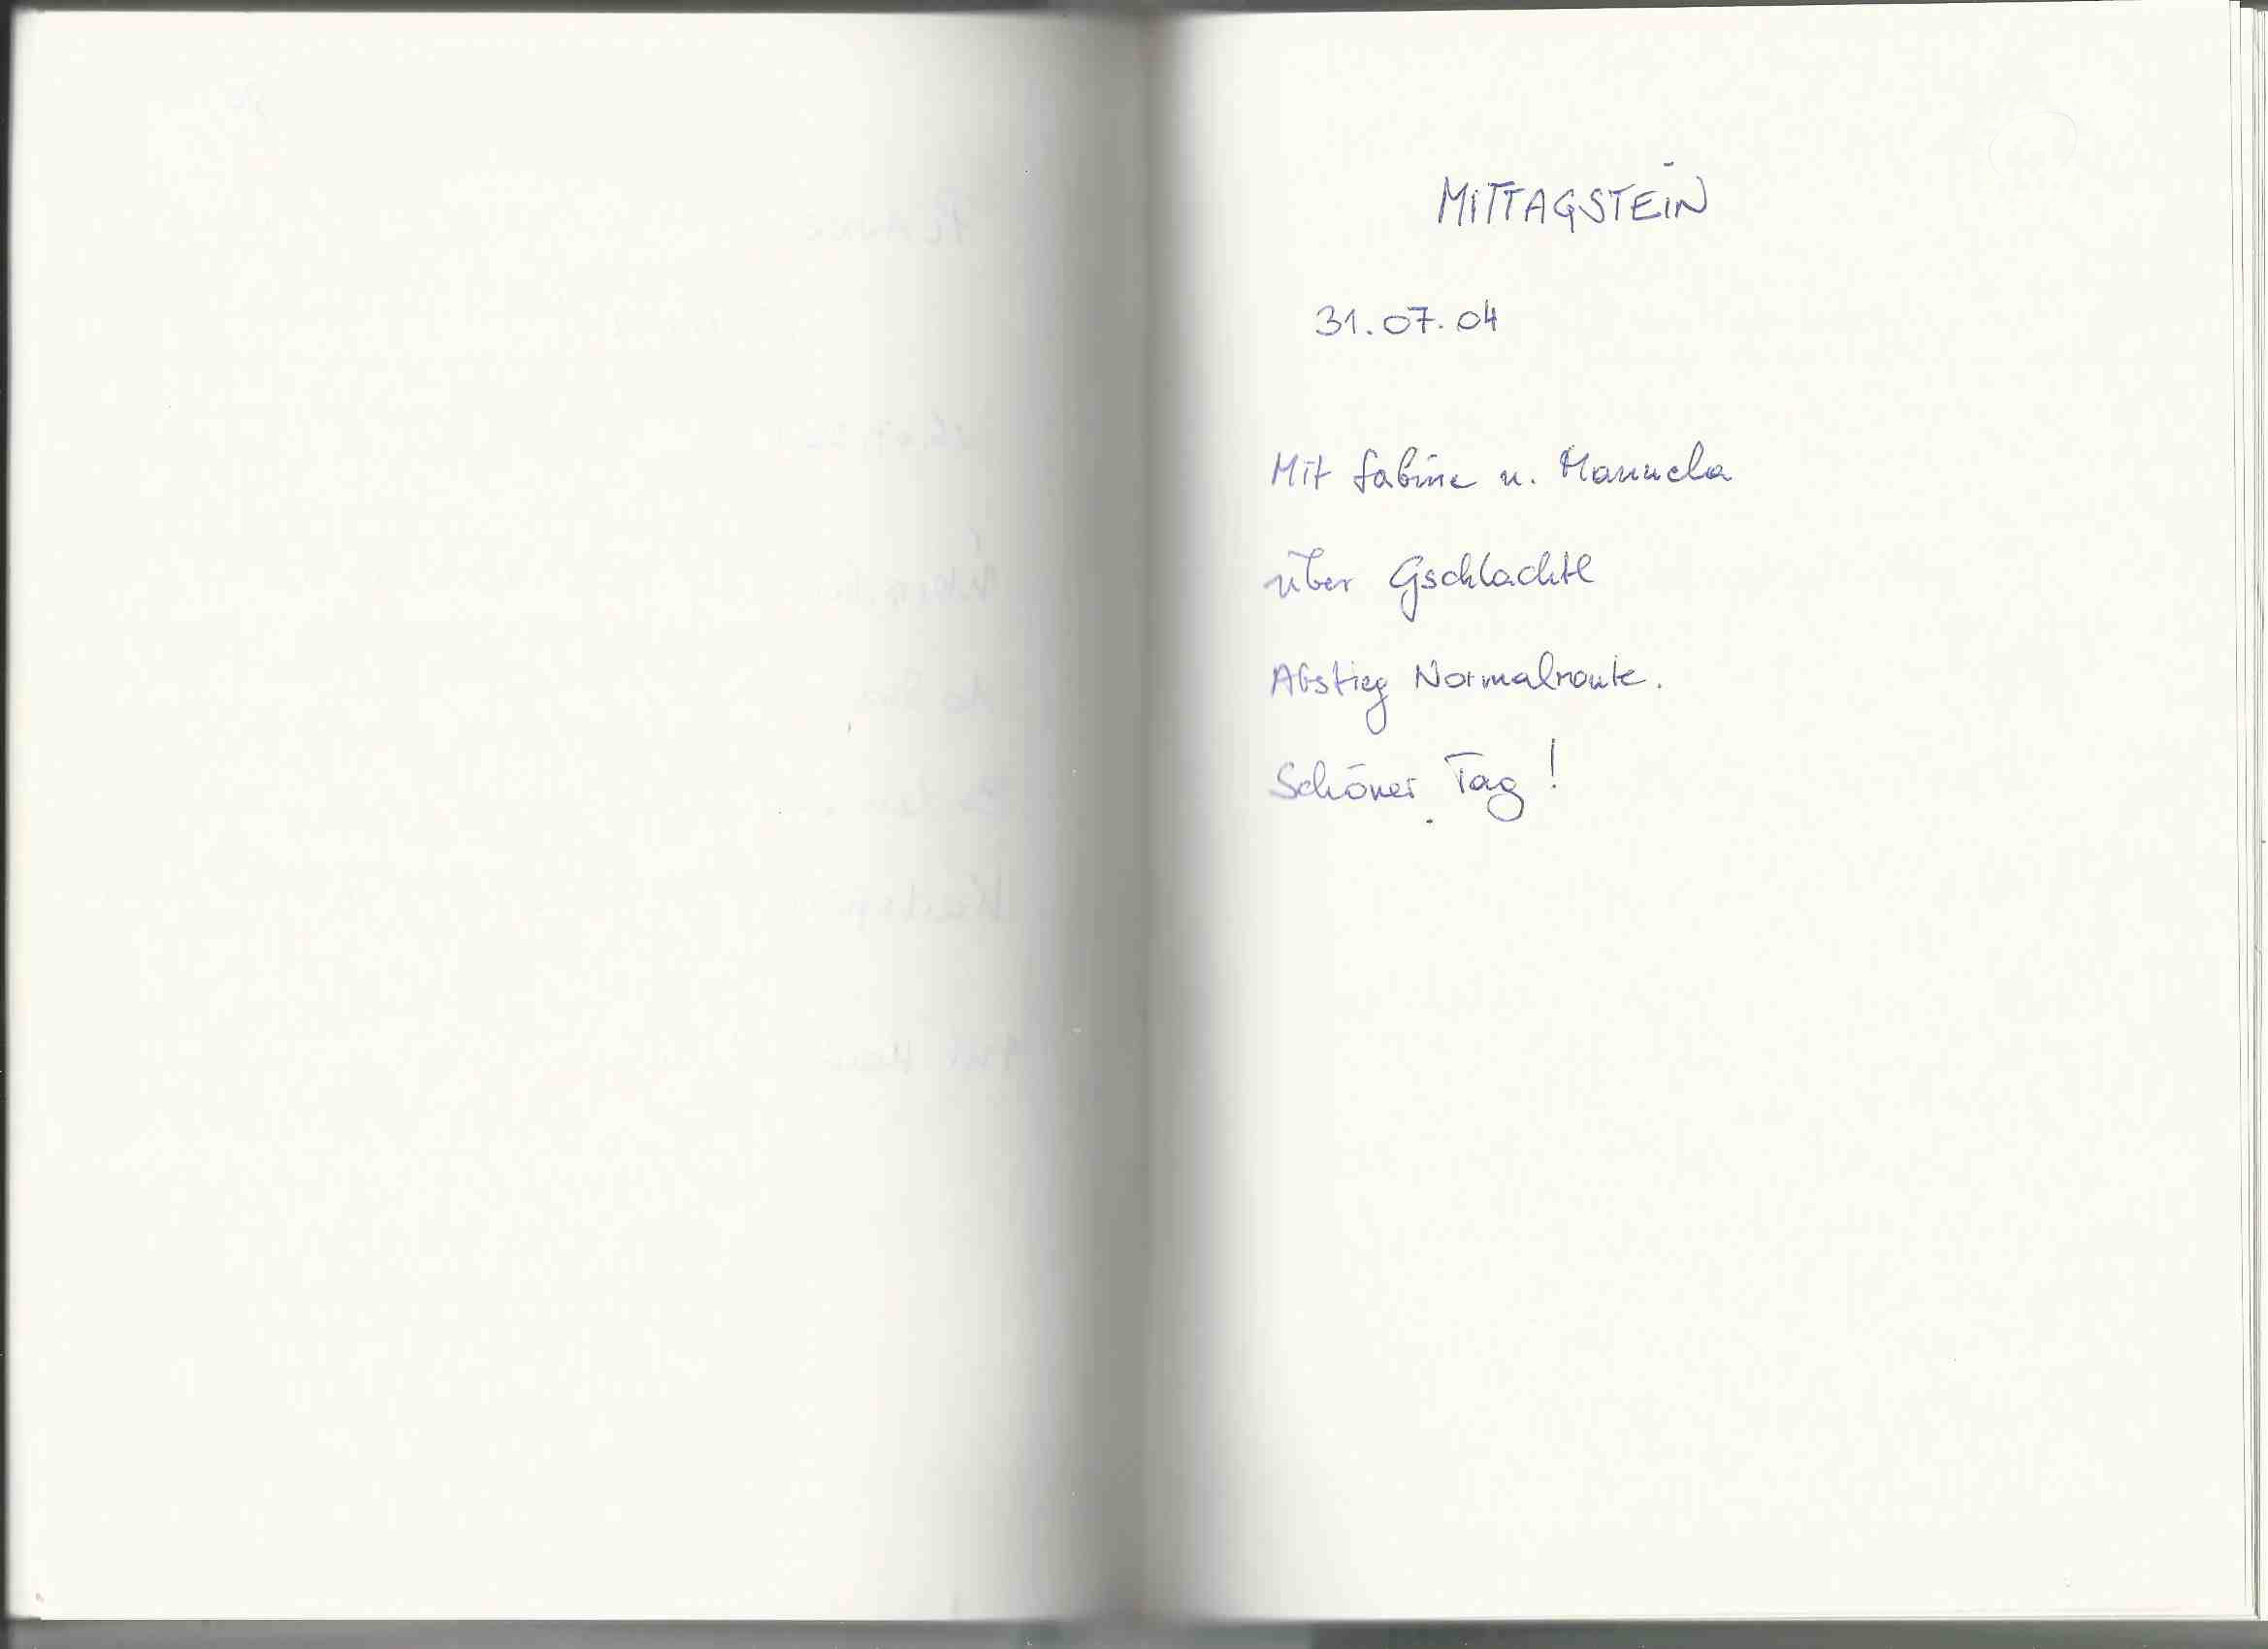 MITTAGSTEIN
31.07.04
Mit Sabine u. Manuela
über Gschlachtl
Abstieg Normalroute.
Schöner Tag!